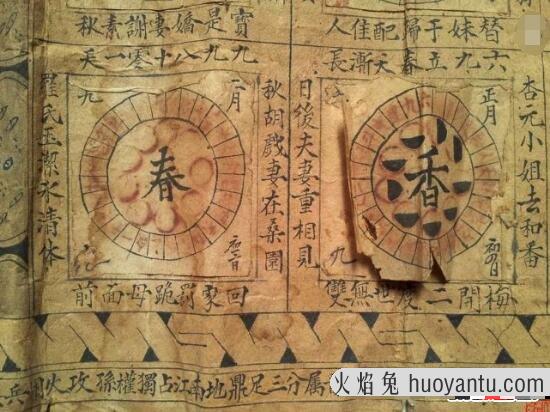 替妹于歸配佳人
六九立春天漸長
杏元小姐去和番
正月
香
九
梅開二度世無雙
日後夫妻重相見
寶是嬌妻謝素秋
九九八十零一天
秋胡戲妻在桑園
二月
九
春
回家罰跪母面前
羅氏玉潔氷清体
兵用火攻孫權獨占江南地鼎足三分属
火焰兔 huoyantu.com